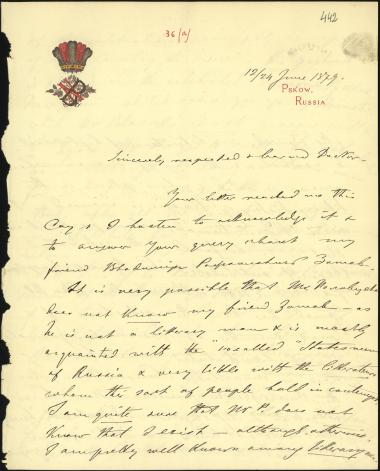 442
36 (a)
12/24 June 1879.
PSKOW,
RUSSIA
Sincerely respected & learned Doctor –
Your letter reached me this
day & I hasten to acknowledge it &
to answer your query about my
friend
It is very possible that Mr
does not know my friend – as
he is not a literary man & is mostly
acquainted with the "so called" Statesmen
of Russia & very little with the literature
whom this sort of people hold in contempt
I am quite sure that Mr P. does not
know that I exist – although otherwise
I am pretty well known among